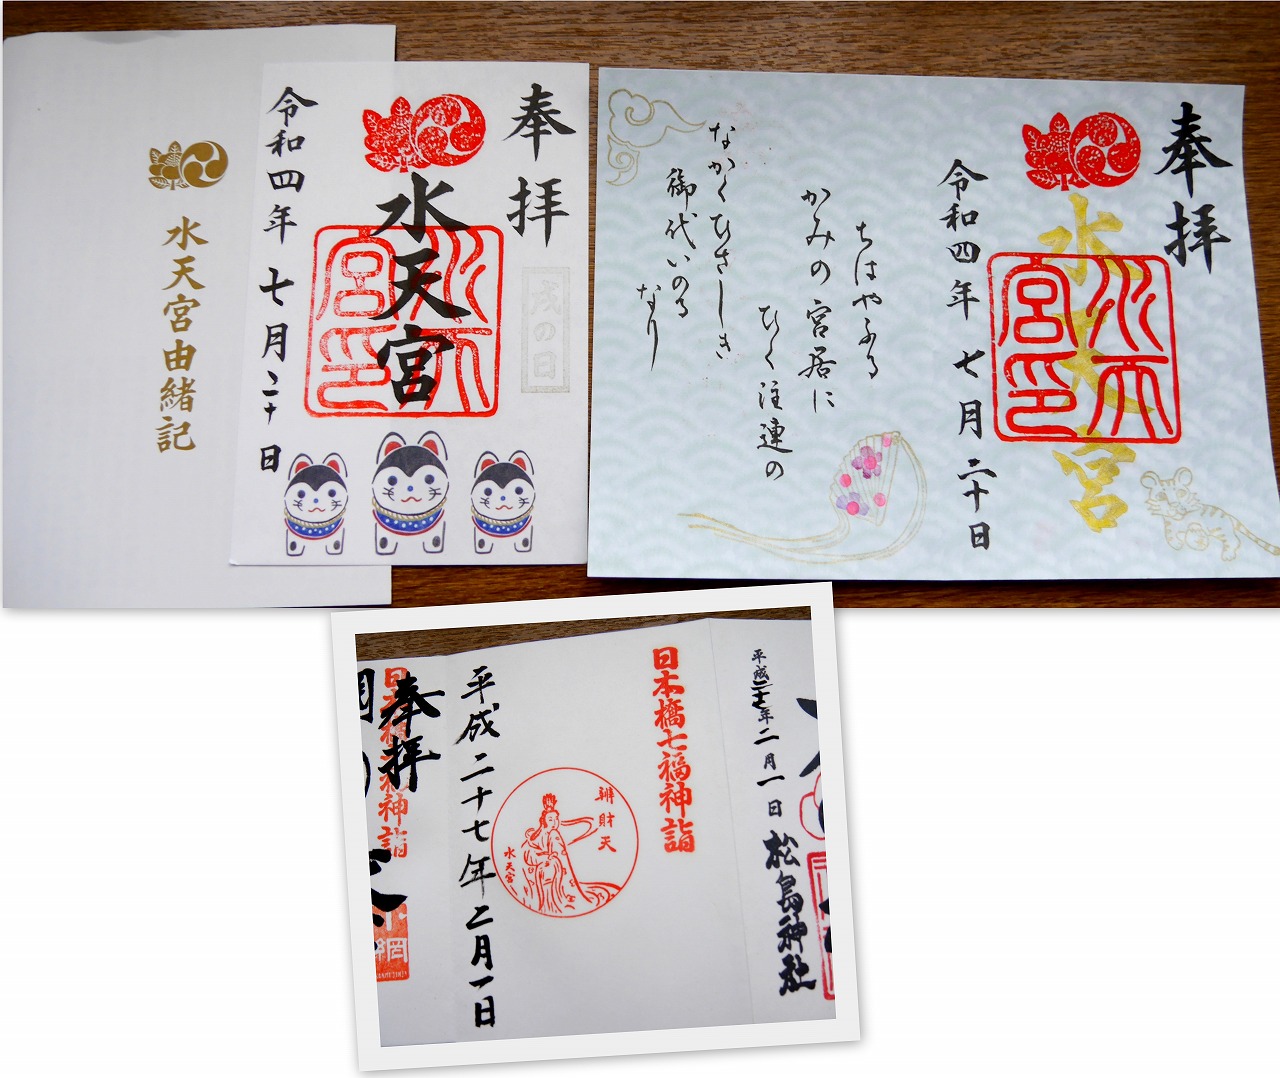 水天宮由緒記
奉拝
戌の日
水天宮
水天宮印
令和四年 七月二十日
奉拝
水天宮
水天宮印
令和四年 七月二十日
ちはやふる
かみの宮居に
ひく注連の
なかくひさしき
御代いのるなり
平成二十七年二月一日
松島神社
日本橋七福神詣
辨財天
水天宮
平成二十七年二月一日
奉拝